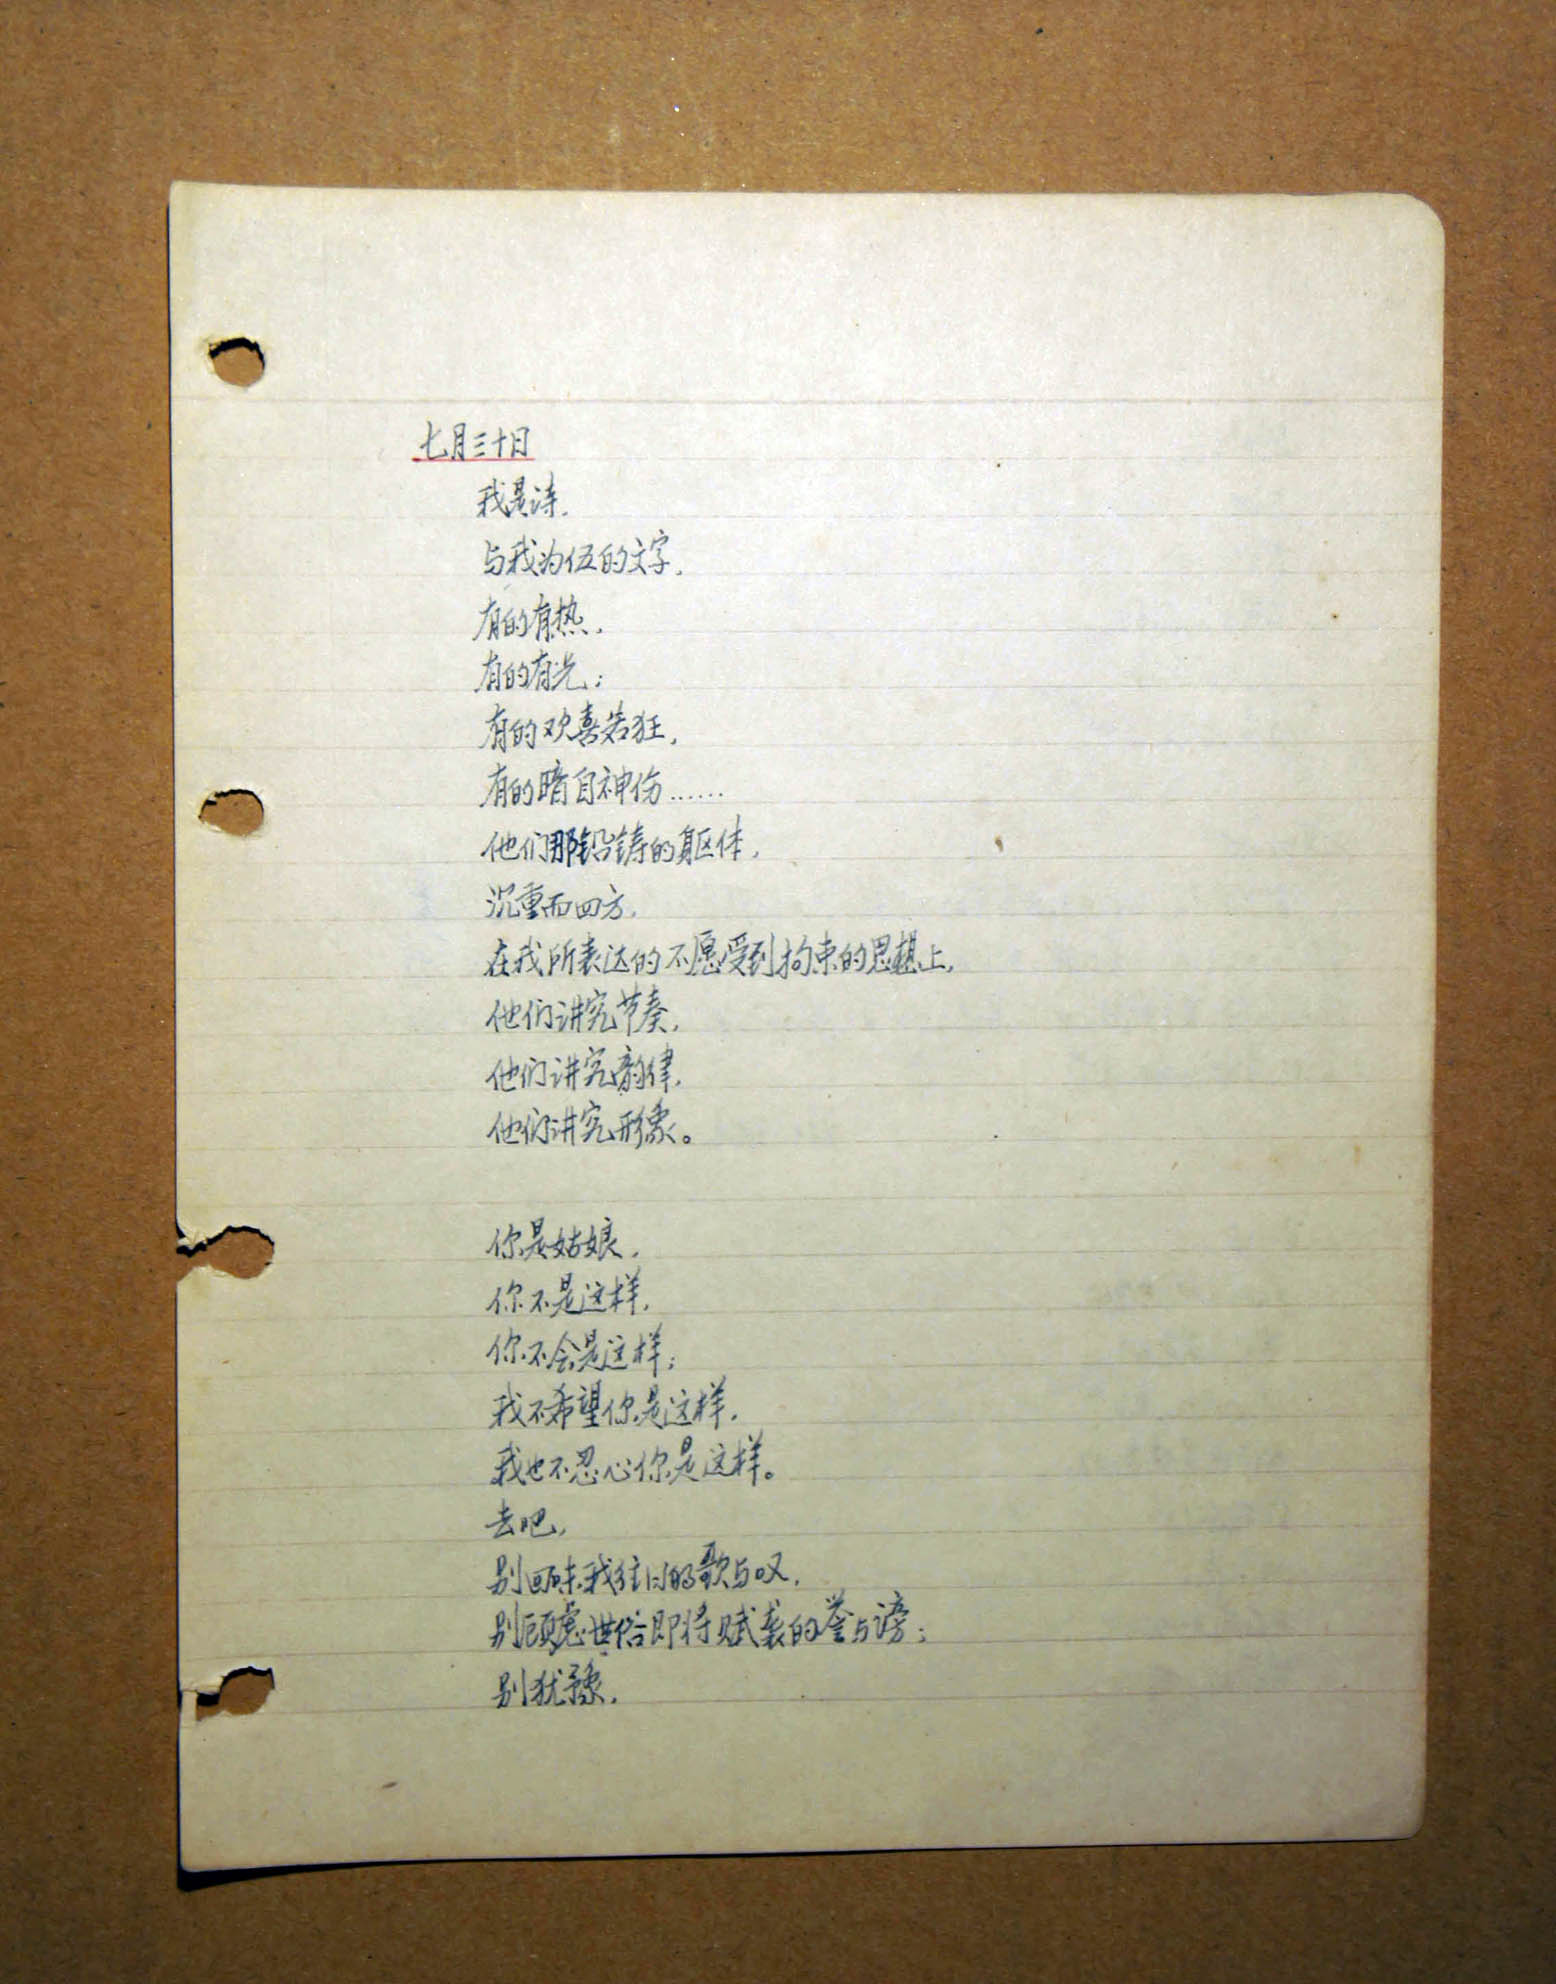 七月三十日
我是诗，
与我为伍的文字，
有的有热，
有的有光；
有的欢喜若狂，
有的暗自神伤……
他们那铅铸的躯体，
沉重而四方，
在我所表达的不愿受到拘束的思想上，
他们讲究节奏，
他们讲究韵律，
他们讲究形象。
你是姑娘，
你不是这样，
你不会是这样；
我不希望你是这样，
我也不忍心你是这样。
去吧，
别回味我往日的歌与叹，
别顾虑世俗即将赋袭的誉与谤；
别犹豫，